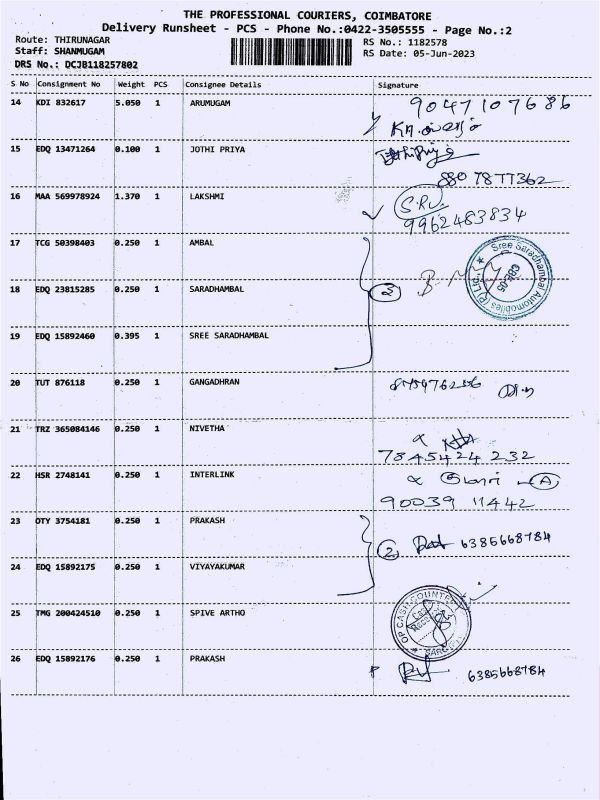 THE PROFESSIONAL COURIERS, COIMBATORE
Delivery Runsheet - PCS - Phone No.:0422-3505555 - Page No.:2
Route: THIRUNAGAR RS No.: 1182578
Staff: SHANMUGAM RS Date: 05-Jun-2023
DRS No.: DCJB118257802
S No Consignment No Weight PCS Consignee Details Signature
14 KDI 832617 5.050 1 ARUMUGAM 9047107686
15 EDQ 13471264 0.100 1 JOTHI PRIYA
8807877362
16 MAA 569978924 1.370 1 LAKSHMI
9962483834
17 TCG 50398403 0.250 1 AMBAL
Sree Saradhambal Automobiles (P) Ltd.,
CBE-05
18 EDQ 23815285 0.250 1 SARADHAMBAL 3
19 EDQ 15892460 0.395 1 SREE SARADHAMBAL
20 TUT 876118 0.250 1 GANGADHRAN
21 TRZ 365084146 0.250 1 NIVETHA
7845424 232
22 HSR 2748141 0.250 1 INTERLINK A
90039 11442
23 OTY 3754181 0.250 1 PRAKASH 2 6385668784
24 EDQ 15892175 0.250 1 VIYAYAKUMAR
25 TMG 200424510 0.250 1 SPIVE ARTHO
26 EDQ 15892176 0.250 1 PRAKASH 6385668784